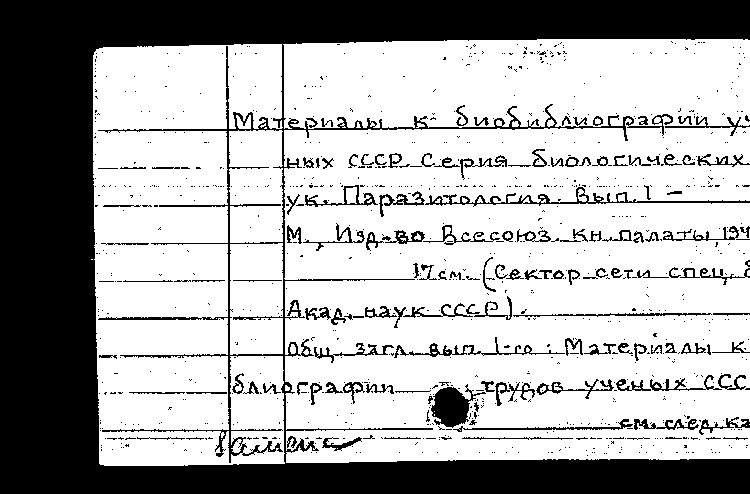 Материалы к биобиблиографии уч
ных СССР. Серия биологических
ук. Паразитология. Вып. 1 –
М., Изд-во Всесоюз. кн. палаты, 194
17 см. (Сектор сети спец. б
Акад. наук СССР).
Общ. загл. вып. 1-го: Материалы к
блиографии трудов ученых СССР
см. след. ка